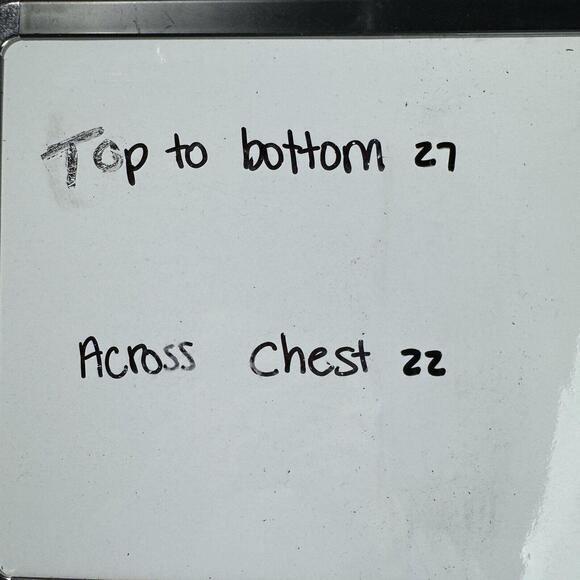 Top to bottom 27
Across Chest 22